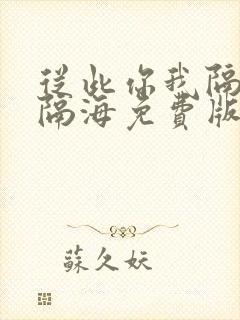 從此你我隔
隔海免費版
蘇久妖